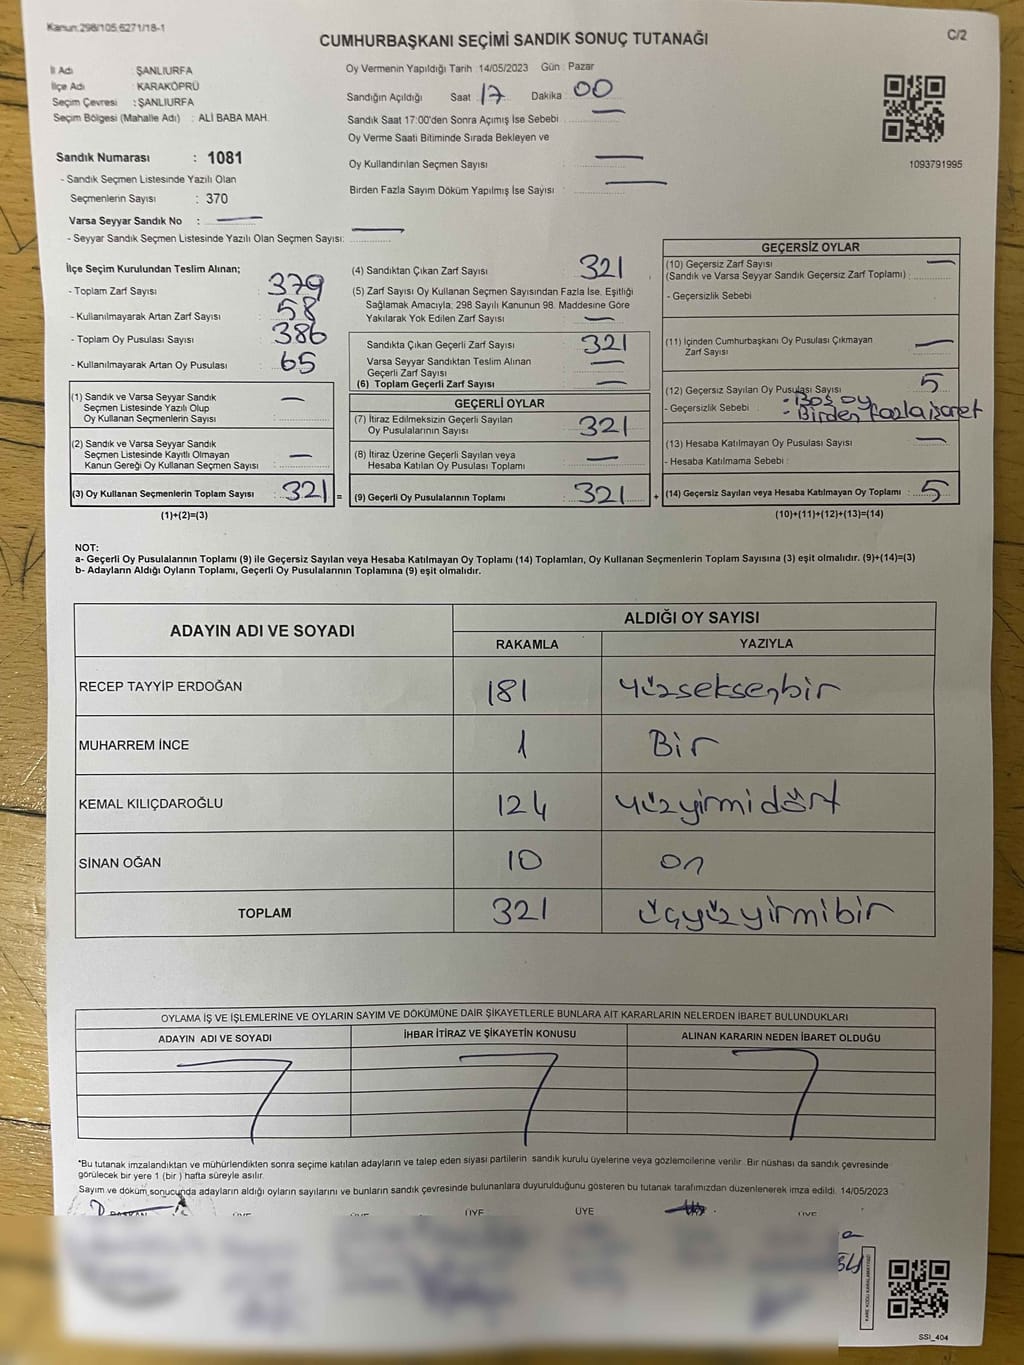 Kanun:298/105,6271/18-1
C/2
CUMHURBAŞKANI SEÇİMİ SANDIK SONUÇ TUTANAĞI
İl Adı : ŞANLIURFA
İlçe Adı : KARAKÖPRÜ
Seçim Çevresi : ŞANLIURFA
Seçim Bölgesi (Mahalle Adı) : ALİ BABA MAH.
Oy Vermenin Yapıldığı Tarih 14/05/2023 Gün : Pazar
Sandığın Açıldığı Saat 17 Dakika 00
Sandık Saat 17:00'den Sonra Açımış İse Sebebi : —
Oy Verme Saati Bitiminde Sırada Bekleyen ve
Oy Kullandırılan Seçmen Sayısı : —
Birden Fazla Sayım Döküm Yapılmış İse Sayısı : —
1093791995
Sandık Numarası : 1081
- Sandık Seçmen Listesinde Yazılı Olan
Seçmenlerin Sayısı : 370
Varsa Seyyar Sandık No : —
- Seyyar Sandık Seçmen Listesinde Yazılı Olan Seçmen Sayısı: —
İlçe Seçim Kurulundan Teslim Alınan;
- Toplam Zarf Sayısı : 379
- Kullanılmayarak Artan Zarf Sayısı : 58
- Toplam Oy Pusulası Sayısı : 386
- Kullanılmayarak Artan Oy Pusulası : 65
(1) Sandık ve Varsa Seyyar Sandık
Seçmen Listesinde Yazılı Olup
Oy Kullanan Seçmenlerin Sayısı : —
(2) Sandık ve Varsa Seyyar Sandık
Seçmen Listesinde Kayıtlı Olmayan
Kanun Gereği Oy Kullanan Seçmen Sayısı : —
(3) Oy Kullanan Seçmenlerin Toplam Sayısı : 321 =
(1)+(2)=(3)
(4) Sandıktan Çıkan Zarf Sayısı : 321
(5) Zarf Sayısı Oy Kullanan Seçmen Sayısından Fazla İse, Eşitliği
Sağlamak Amacıyla, 298 Sayılı Kanunun 98. Maddesine Göre
Yakılarak Yok Edilen Zarf Sayısı : —
Sandıkta Çıkan Geçerli Zarf Sayısı : 321
Varsa Seyyar Sandıktan Teslim Alınan
Geçerli Zarf Sayısı : —
(6) Toplam Geçerli Zarf Sayısı : —
GEÇERLİ OYLAR
(7) İtiraz Edilmeksizin Geçerli Sayılan
Oy Pusulalarının Sayısı : 321
(8) İtiraz Üzerine Geçerli Sayılan veya
Hesaba Katılan Oy Pusulası Toplamı : —
(9) Geçerli Oy Pusulalarının Toplamı : 321 +
GEÇERSİZ OYLAR
(10) Geçersiz Zarf Sayısı —
(Sandık ve Varsa Seyyar Sandık Geçersiz Zarf Toplamı) :
- Geçersizlik Sebebi :
(11) İçinden Cumhurbaşkanı Oy Pusulası Çıkmayan
Zarf Sayısı : —
(12) Geçersiz Sayılan Oy Pusulası Sayısı : 5
- Geçersizlik Sebebi : - Boş oy
- Birden fazla işaret
(13) Hesaba Katılmayan Oy Pusulası Sayısı : —
- Hesaba Katılmama Sebebi :
(14) Geçersiz Sayılan veya Hesaba Katılmayan Oy Toplamı : 5
(10)+(11)+(12)+(13)=(14)
NOT:
a- Geçerli Oy Pusulalarının Toplamı (9) ile Geçersiz Sayılan veya Hesaba Katılmayan Oy Toplamı (14) Toplamları, Oy Kullanan Seçmenlerin Toplam Sayısına (3) eşit olmalıdır. (9)+(14)=(3)
b- Adayların Aldığı Oyların Toplamı, Geçerli Oy Pusulalarının Toplamına (9) eşit olmalıdır.
ADAYIN ADI VE SOYADI
ALDIĞI OY SAYISI
RAKAMLA YAZIYLA
RECEP TAYYİP ERDOĞAN 181 yüzseksenbir
MUHARREM İNCE 1 Bir
KEMAL KILIÇDAROĞLU 124 yüzyirmidört
SİNAN OĞAN 10 on
TOPLAM 321 üçyüzyirmibir
OYLAMA İŞ VE İŞLEMLERİNE VE OYLARIN SAYIM VE DÖKÜMÜNE DAİR ŞİKAYETLERLE BUNLARA AİT KARARLARIN NELERDEN İBARET BULUNDUKLARI
ADAYIN ADI VE SOYADI İHBAR İTİRAZ VE ŞİKAYETİN KONUSU ALINAN KARARIN NEDEN İBARET OLDUĞU
*Bu tutanak imzalandıktan ve mühürlendikten sonra seçime katılan adayların ve talep eden siyasi partilerin sandık kurulu üyelerine veya gözlemcilerine verilir. Bir nüshası da sandık çevresinde
görülecek bir yere 1 (bir ) hafta süreyle asılır.
Sayım ve döküm sonucunda adayların aldığı oyların sayılarını ve bunların sandık çevresinde bulunanlara duyurulduğunu gösteren bu tutanak tarafımızdan düzenlenerek imza edildi. 14/05/2023
BAŞKAN ÜYE ÜYE ÜYE ÜYE
SSI_404